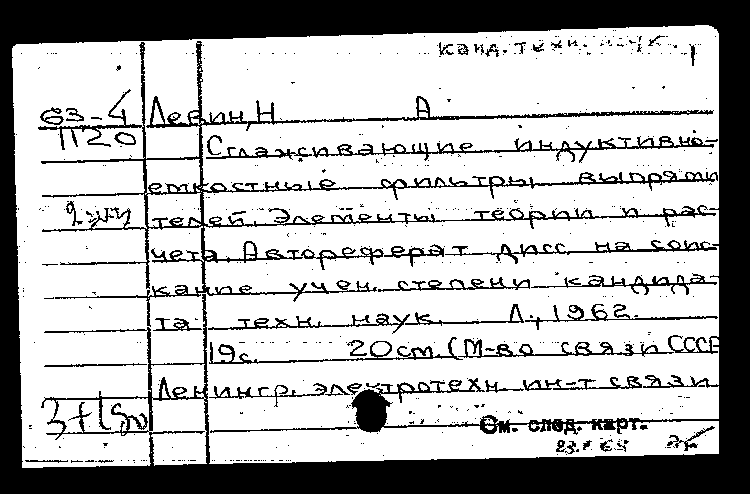 канд. техн. наук.
63-4 Левин, Н А
1120
Сглаживающие индуктивно-
емкостные фильтры выпрями
телей. Элементы теории и рас-
чета. Автореферат дисс. на соис-
кание учен. степени кандида-
та техн. наук. Л., 1962.
19с. 20см. (М-во связи СССР
Ленингр. электротехн. ин-т связи
См. след. карт.